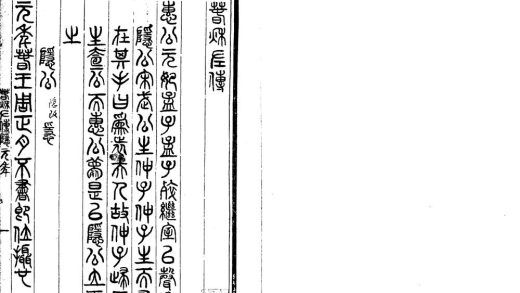 春秋左傳
惠公元妃孟子孟子卒繼室以聲
隱公宋武公生仲子仲子生而有
在其手曰爲魯夫人故仲子歸于
生桓公而惠公薨是以隱公立而
之
隱公
元年春王周正月不書即位攝也
春秋左傳隱 元年 一